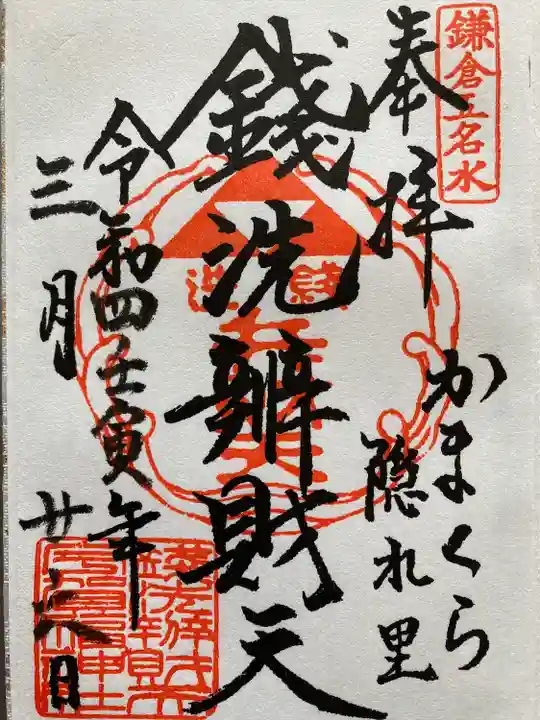 鎌倉五名水
奉拝
かまくら
隠れ里
銭洗
錢洗辨財天
令和四壬寅年
三月
廿六日